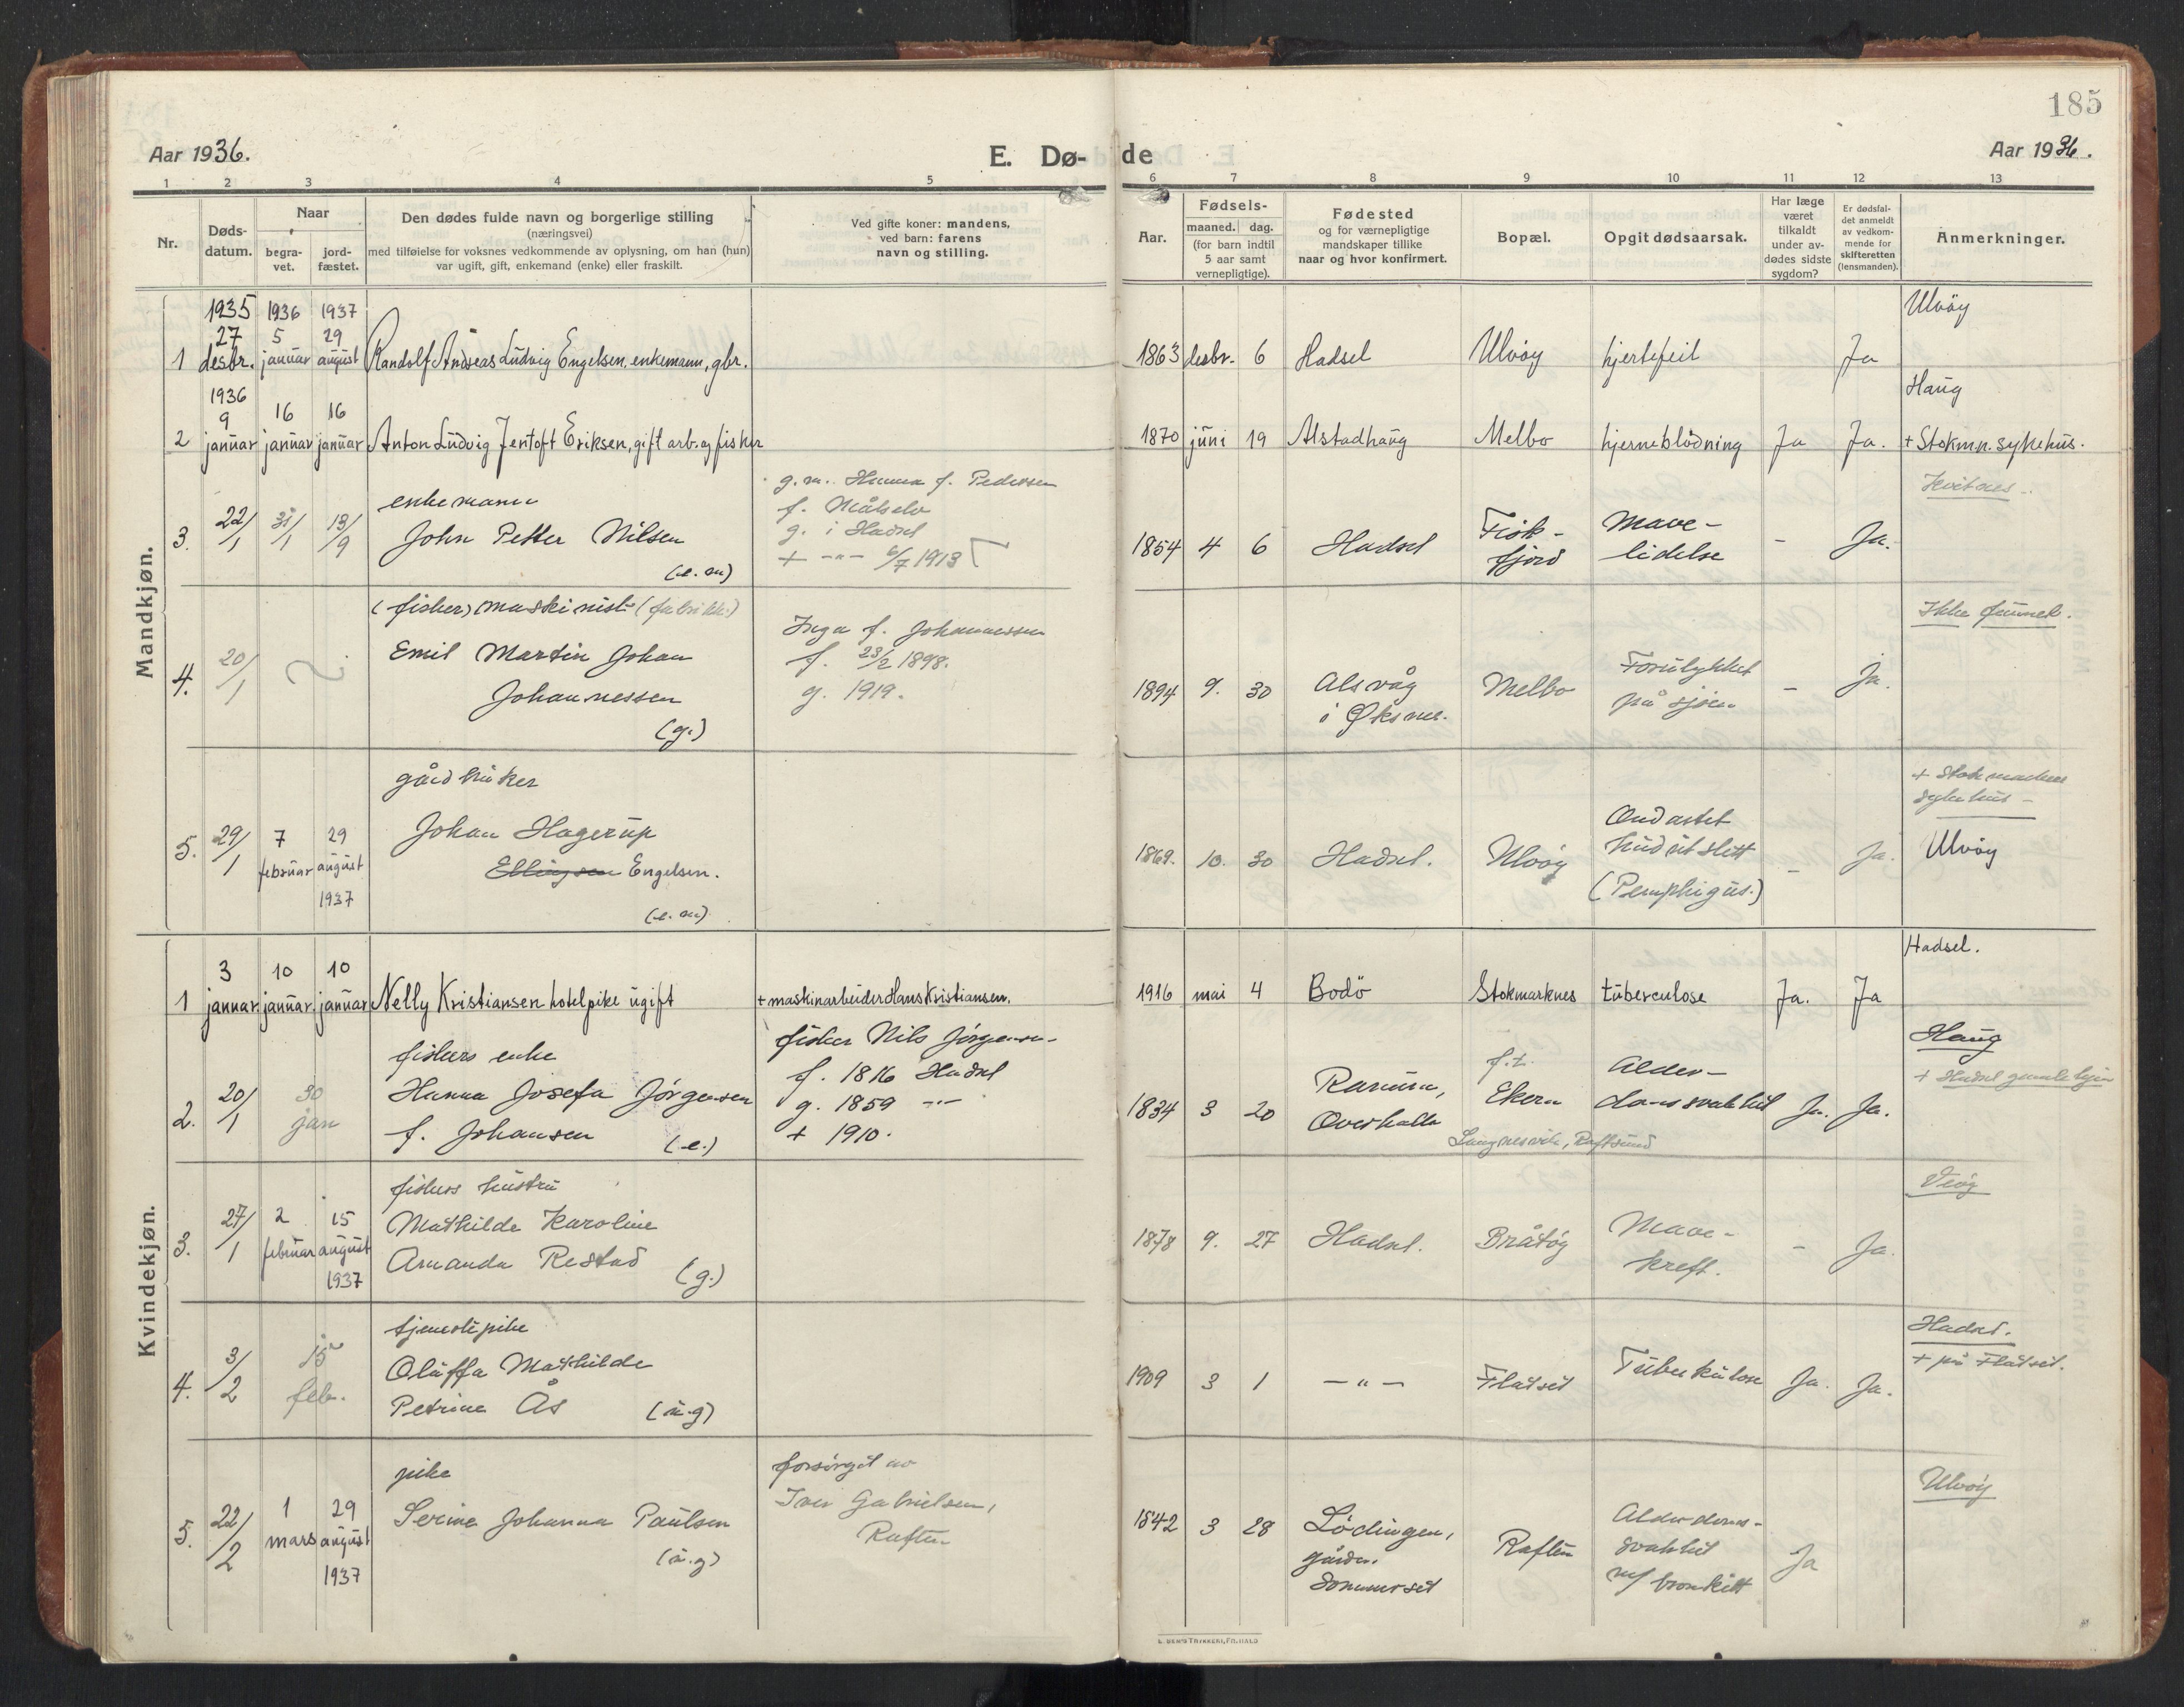 185
Aar 1936.
E. Dø-
de
Aar 1936.
1 2 3 4 5 6 7 8 9 10 11 12 13
Nr.
Døds-
datum.
Naar
begra-
vet.
jord-
fæstet.
Den dødes fulde navn og borgerlige stilling
(næringsvei)
med tilføielse for voksnes vedkommende av oplysning, om han (hun)
var ugift, gift, enkemand (enke) eller fraskilt.
Ved gifte koner: mandens,
ved barn: farens
navn og stilling.
Aar.
Fødsels-
maaned. dag.
(for barn indtil
5 aar samt
vernepligtige).
Fødested
og for værnepligtige
mandskaper tillike
naar og hvor konfirmert.
Bopæl.
Opgit dødsaarsak.
Har læge
været
tilkaldt
under av-
dødes sidste
sygdom?
Er dødsfal-
det anmeldt
av vedkom-
mende for
skifteretten
(lensmanden).
Anmerkninger.
Mandkjøn.
1935 1936 1937 Ulvöy
27 5 29
1 desbr. januar august Randolf Andreas Ludvig Engelsen, enkemann, gbr. 1863 desbr. 6 Hadsel Ulvöy hjertefeil Ja
1936 Haug
9 16 16
2 januar januar januar Anton Ludvig Jentoft Eriksen, gift arb. og fisker 1870 juni 19 Alstadhaug Melbo hjerneblödning Ja Ja. + Stokmn. sykehus.
3. 22/1 31/1 13/9
enkemann
John Petter Nilsen
(e.m)
g.m. Hanna f. Pedersen
f. Målselv
g. i Hadsel
+ -"- 6/7 1913
1854 4 6 Hadsel
Fisk-
fjord
Mave-
lidelse
- Ja.
Kvitnes.
4. 20/1
(fisker) maskinist (fabrikk.)
Emil Martin Johan
Johannessen
(g.)
Inga f. Johannessen
f. 23/2 1898.
g. 1919.
1894 9. 30
Alsvåg
i Øksnes.
Melbo
Forulykket
på sjøen
- Ja.
Ikke funnet.
5. 29/1
7
februar
29
august
1937
gårdbruker
Johan Hagerup
Ellingsen Engelsen.
(e.m)
1869. 10. 30 Hadsel. Ulvöy
Ondartet
hudutslett
(Pemphigus.)
- Ja.
+ Stokmarknes
sykehus -
Ulvöy
Kvindekjøn.
3 10 10 Hadsel.
1 januar januar. januar Nelly Kristiansen hotelpike ugift + maskinarbeider Hans Kristiansen. 1916 mai 4 Bodö Stokmarknes tuberculose Ja. Ja
2. 20/1
30
jan
fiskers enke
Hanna Josefa Jörgensen
f. Johansen (e.)
fisker Nils Jörgensen
f. 1816 Hadsel
g. 1859 -"-
+ 1910.
1834 3 20
Ranum,
Overhalla
f.t.
Ekern
Langnesvik, Raftsund
Alder-
domssvakhet
Ja. Ja.
Haug
+ Hadsel gamlehjem
3. 27/1
2
februar
15
august
1937
fiskers hustru
Mathilde Karoline
Amanda Restad
(g.)
1878 9. 27 Hadsel. Bråtöy
Mave-
kreft.
- Ja.
4. 3/2
15
feb.
tjenestepike
Oluffa Mathilde
Petrine Ås (u.g)
1909 3 1 -"- Flatset Tuberkulose Ja. Ja.
Hadsel.
+ på Flatset.
5. 22/2
1
mars
29
august
1937
pike
Serine Johanna Paulsen
(u.g)
forsörget av
Iver Gabrielsen,
Raften
1842 3 28
Lödingen,
gården
Sommerset
Raften
Alderdoms-
svakhet
m/ bronkitt
Ja
Ulvöy